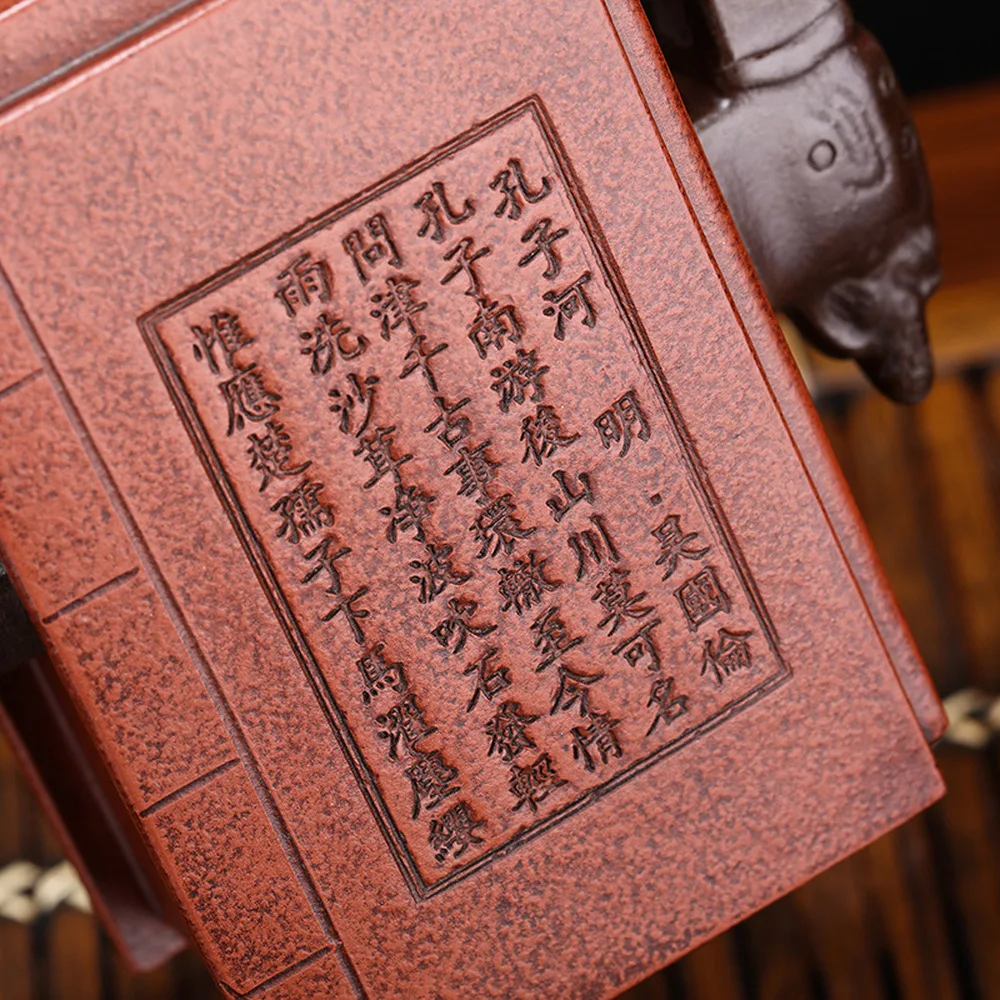 孔子河 明·吴國倫
孔子南游後山川莫可名
問津千古事環轍至今情
雨洗沙茸淨波吹石發輕
惟應楚孺子下馬濯塵纓